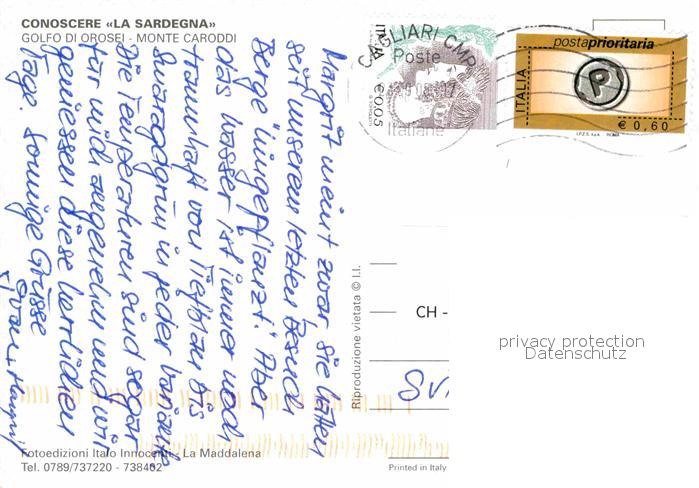 CONOSCERE «LA SARDEGNA»
GOLFO DI OROSEI - MONTE CARODDI
Margrit meint zwar, sie hätten
seit unserem letzten Besuch
Berge "umgepflanzt". Aber
das Wasser ist immer noch
traumhaft von Tiefblau bis
Smaragdgrün in jeder Variante
Die Temperaturen sind sogar
für mich angenehm und wir
geniessen diese herrlichen
Tage. Sonnige Grüsse
Margrit
Fotoedizioni Italo Innocenti - La Maddalena
Tel. 0789/737220 - 738402
Riproduzione vietata © I.I.
Printed in Italy
CAGLIARI CMP
Poste
Italiane
ITALIA
€0,05
postaprioritaria
ITALIA
P
€ 0,60
I.P.Z.S. S.p.A. ROMA
CH -
privacy protection
Datenschutz